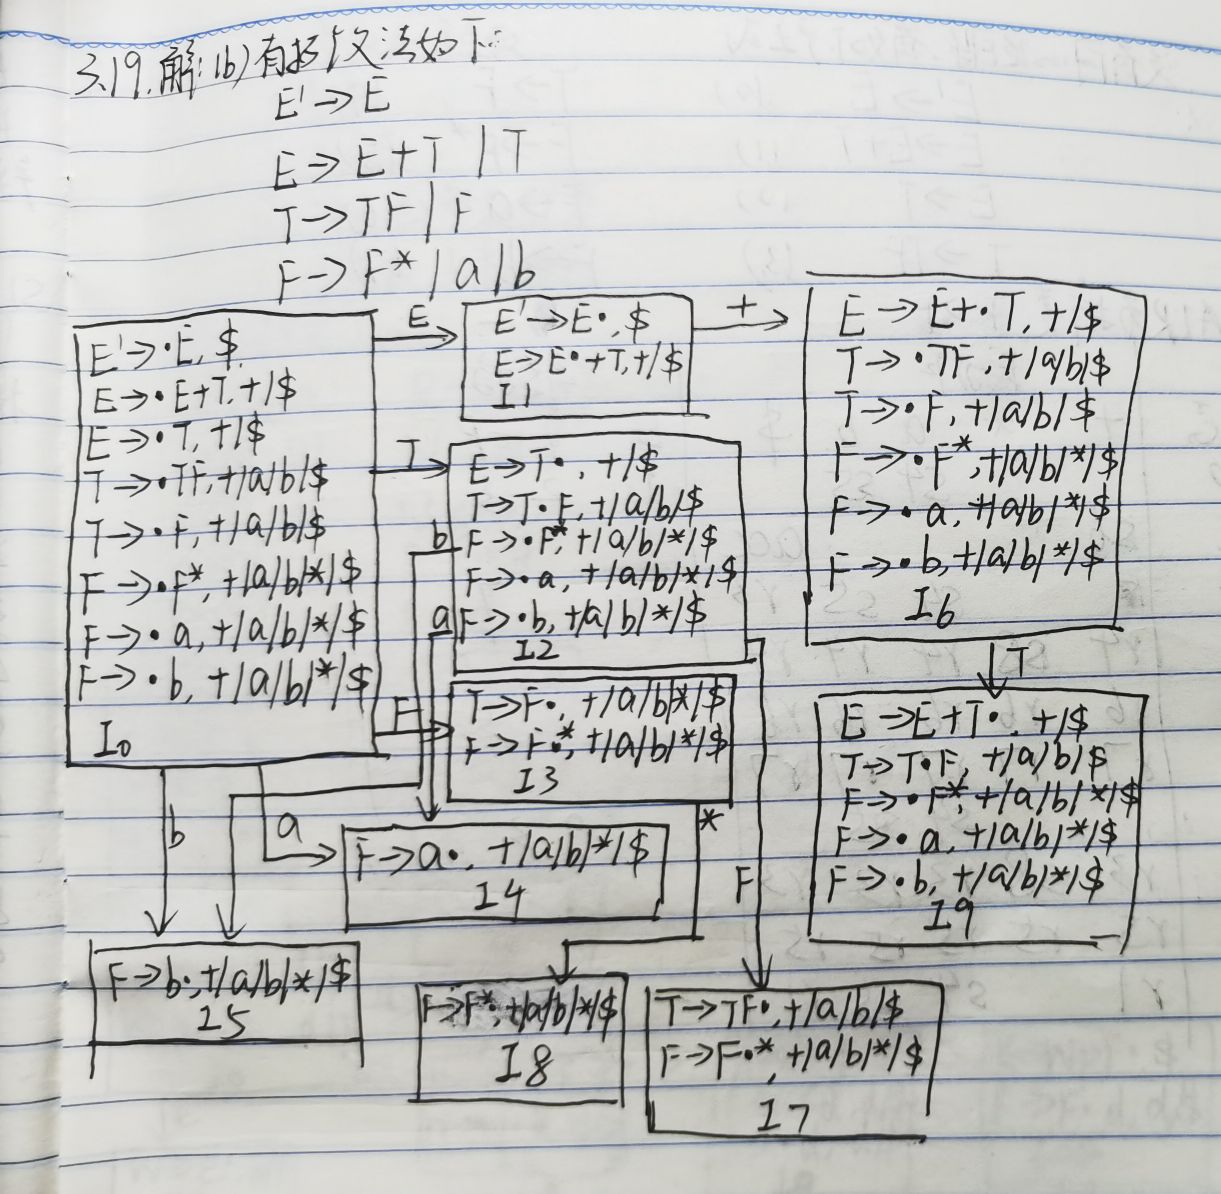 3.19.解:(b)有拓广文法如下:
E'→E
E→E+T|T
T→TF|F
F→F*|a|b
E'→·E,$
E→·E+T,+/$
E→·T,+/$
T→·TF,+/a/b/$
T→·F,+/a/b/$
F→·F*,+/a/b/*/$
F→·a,+/a/b/*/$
F→·b,+/a/b/*/$
I0
E
E'→E·,$
E→E·+T,+/$
I1
+
E→E+·T,+/$
T→·TF,+/a/b/$
T→·F,+/a/b/$
F→·F*,+/a/b/*/$
F→·a,+/a/b/*/$
F→·b,+/a/b/*/$
I6
T
E→T·,+/$
T→T·F,+/a/b/$
F→·F*,+/a/b/*/$
F→·a,+/a/b/*/$
F→·b,+/a/b/*/$
I2
b
a
F
T→F·,+/a/b/*/$
F→F·*,+/a/b/*/$
I3
T
E→E+T·,+/$
T→T·F,+/a/b/$
F→·F*,+/a/b/*/$
F→·a,+/a/b/*/$
F→·b,+/a/b/*/$
I9
b
a
F→a·,+/a/b/*/$
I4
*
F
F→b·,+/a/b/*/$
I5
F→F*·,+/a/b/*/$
I8
T→TF·,+/a/b/$
F→F·*,+/a/b/*/$
I7